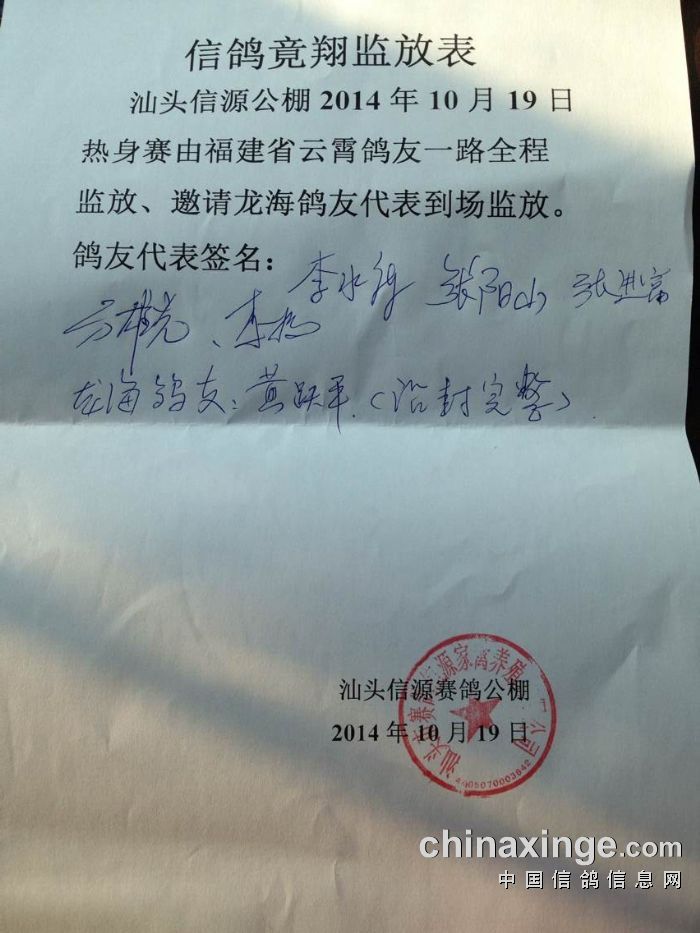 信鸽竟翔监放表
汕头信源公棚 2014 年 10 月 19 日
热身赛由福建省云霄鸽友一路全程
监放、邀请龙海鸽友代表到场监放。
鸽友代表签名：
李水 张阳山 张进富
方 、李
龙海鸽友：黄跃平（沿封完整）.
汕头 源家禽养殖 公司
4405070003642
汕头信源赛鸽公棚
2014 年 10 月 19 日
chinaxinge.com
中国信鸽信息网